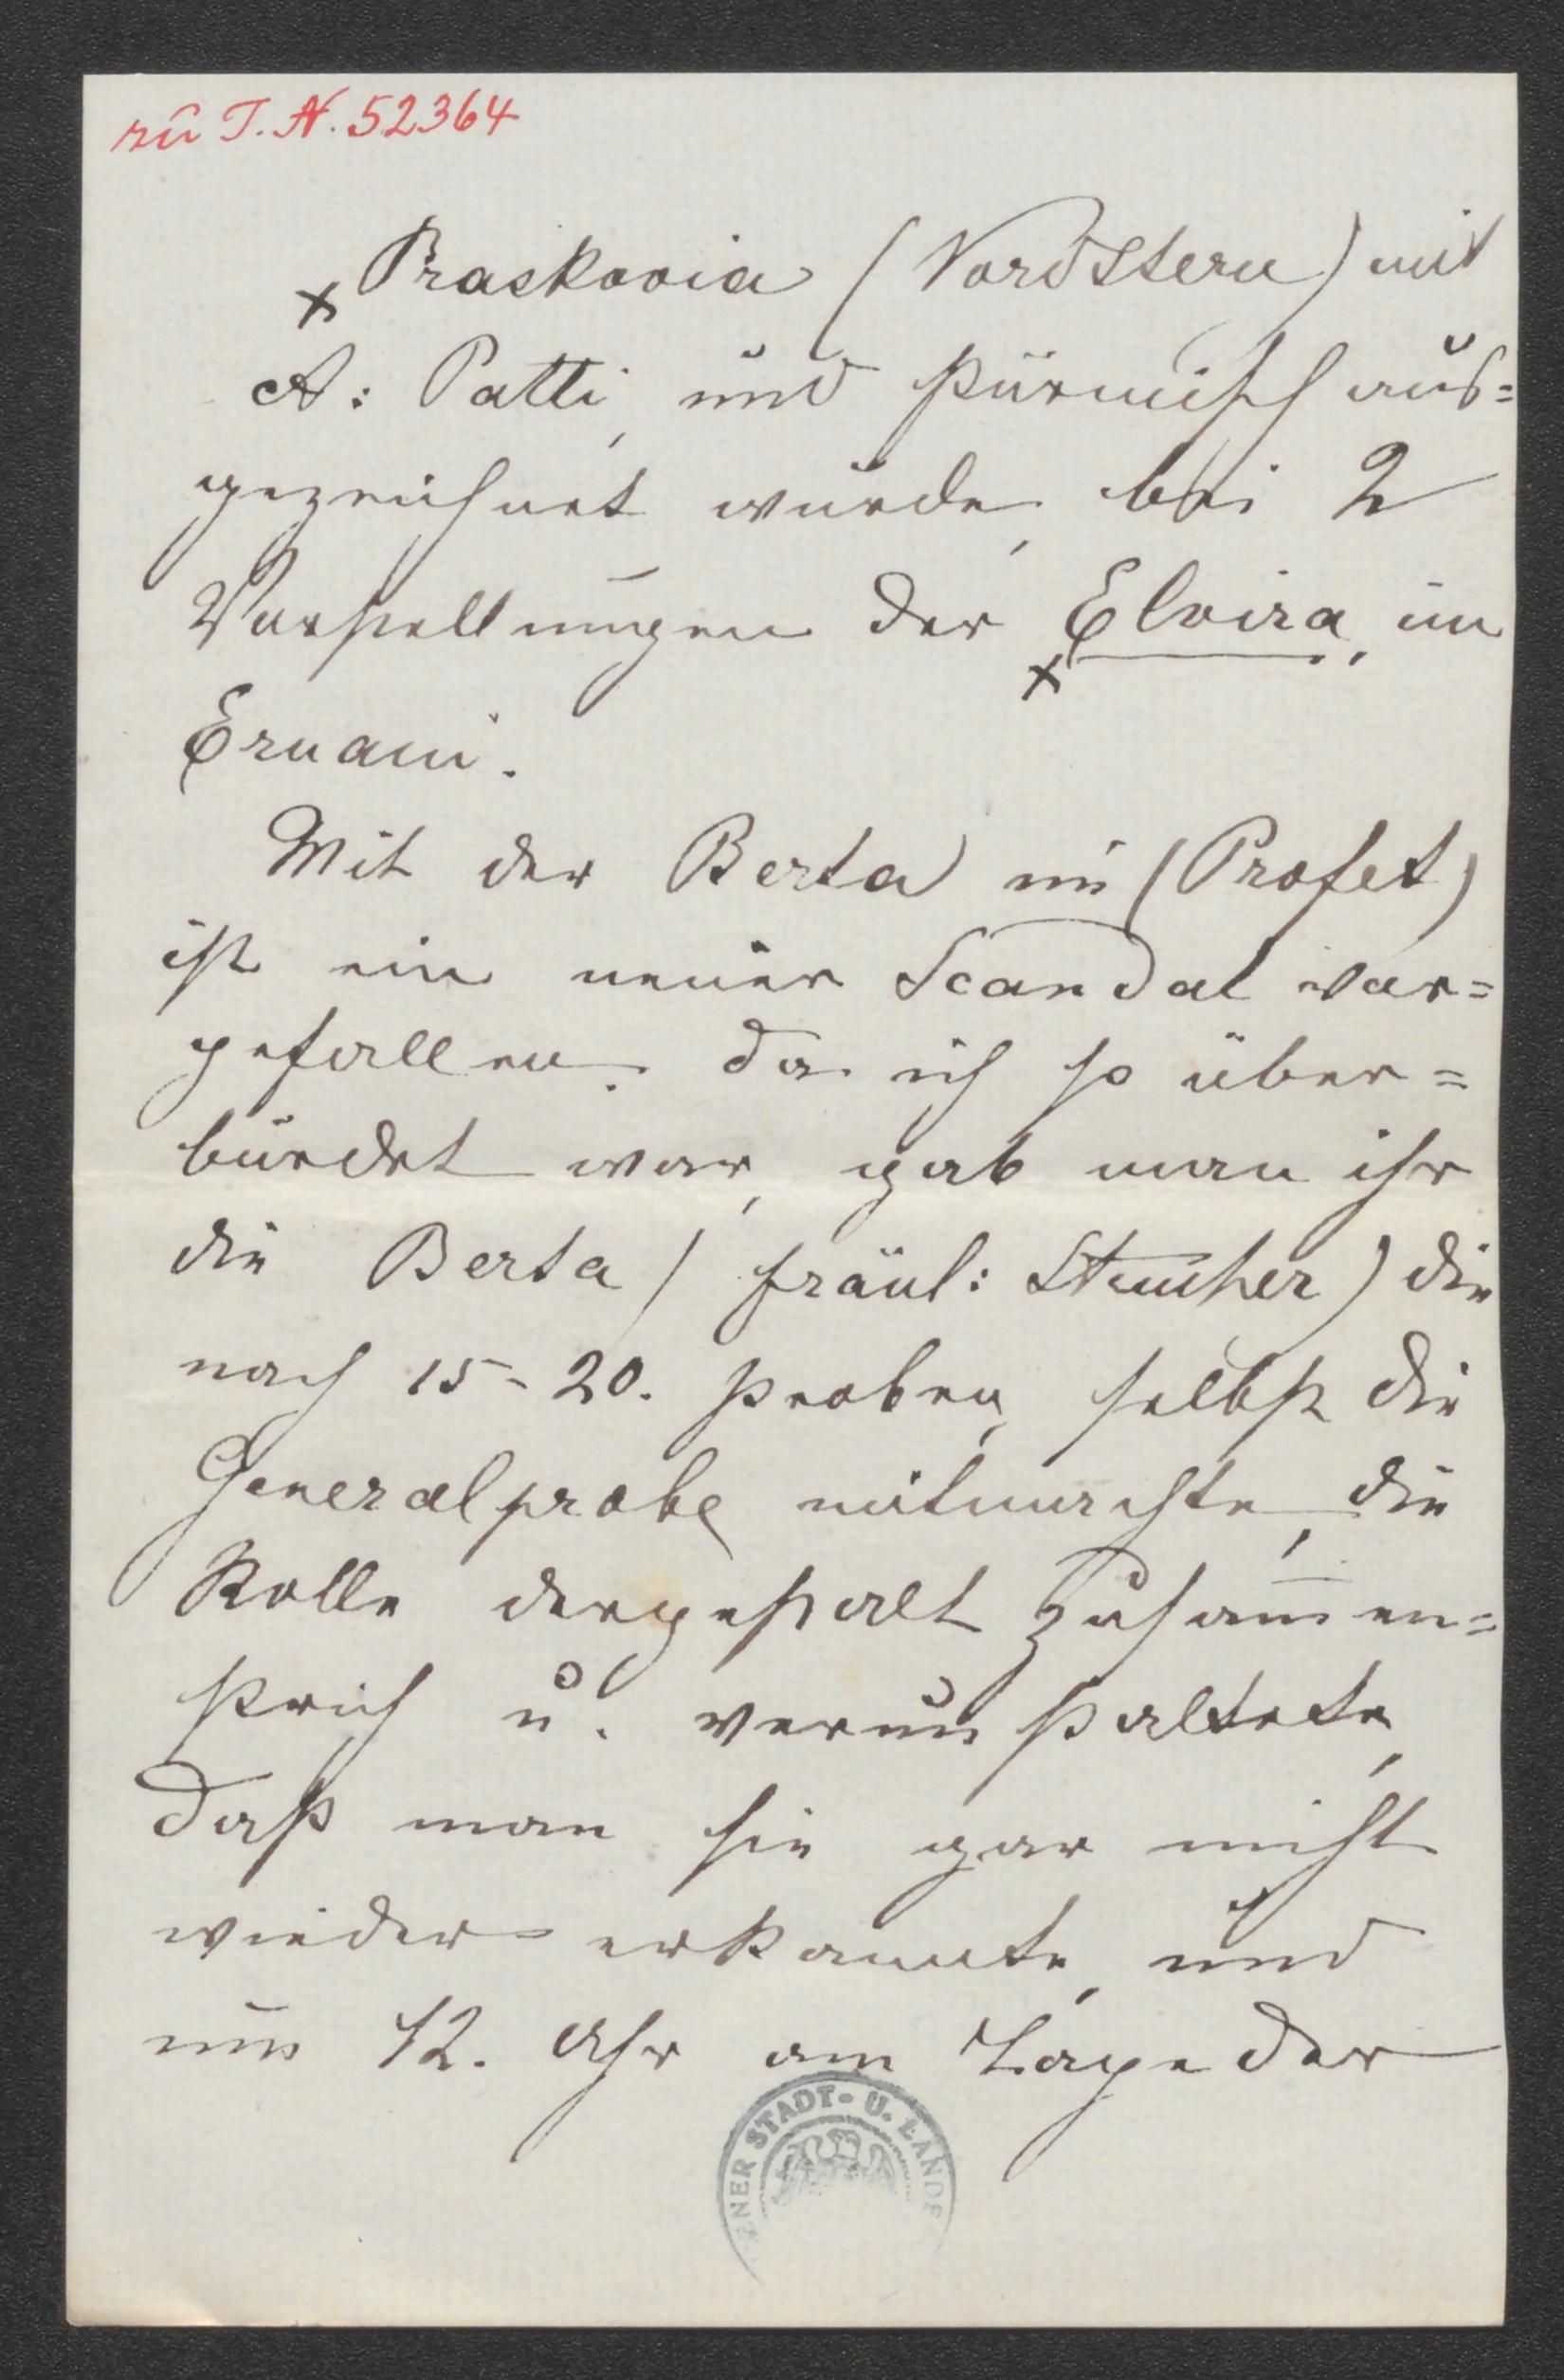 zu I. N. 52364
x Praskovia (Nordstern) mit
A: Patti, und stürmisch aus=
gezeichnet wurde, bei 2
Vorstellungen der
x Elvira, im
Ernani.
Mit der Berta im (Profet)
ist ein neuer Scandal vor=
gefallen. da ich so über=
bürdet war, gab man ihr
die Berta / Fräul: ) die
nach 15-20. Proben, selbst die
Generalprobe mitmachte, die
Rolle dergestalt zusam̅en=
strich u. verunstaltete,
daß man sie gar nicht
wieder erkannte, und
um 12. Uhr am Tage der
ENER STADT- U. LANDE